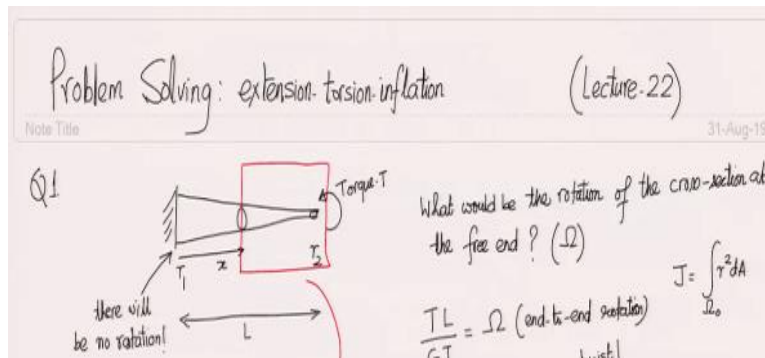 Problem Solving: extension-torsion-inflation (Lecture-22)
Note Title 31-Aug-19
Q1
Torque-T
T1 x T2
L
there will
be no rotation!
What would be the rotation of the cross-section at
the free end? (Ω)
J = ∫ r²dA
Ω₀
TL = Ω (end-to-end rotation)
GJ